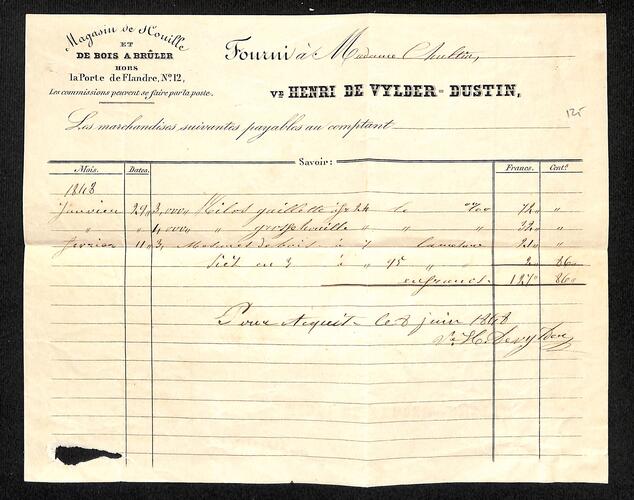 Magasin de Houille
ET
DE BOIS A BRÛLER
HORS
la Porte de Flandre, No 12,
Les commissions peuvent se faire par la poste.
Fourni à Madame
VE HENRI DE VYLDER-DUSTIN,
125
Les marchandises suivantes payables au comptant
Savoir:
Mois. Dates. Francs. Cents
1848
Janvier 29 " 3,000 " Kilos gaillette à fr 24 le %00 72 " "
" " 1,000 " " " " 32 " "
février 11 " 3, de bois à 7 " 21 " "
Sciér en 3 à " 95 " " 2 " 86 "
en francs 127 " 86 "
Pour Acquit le 8 juin 1848
Ve H. De vylder